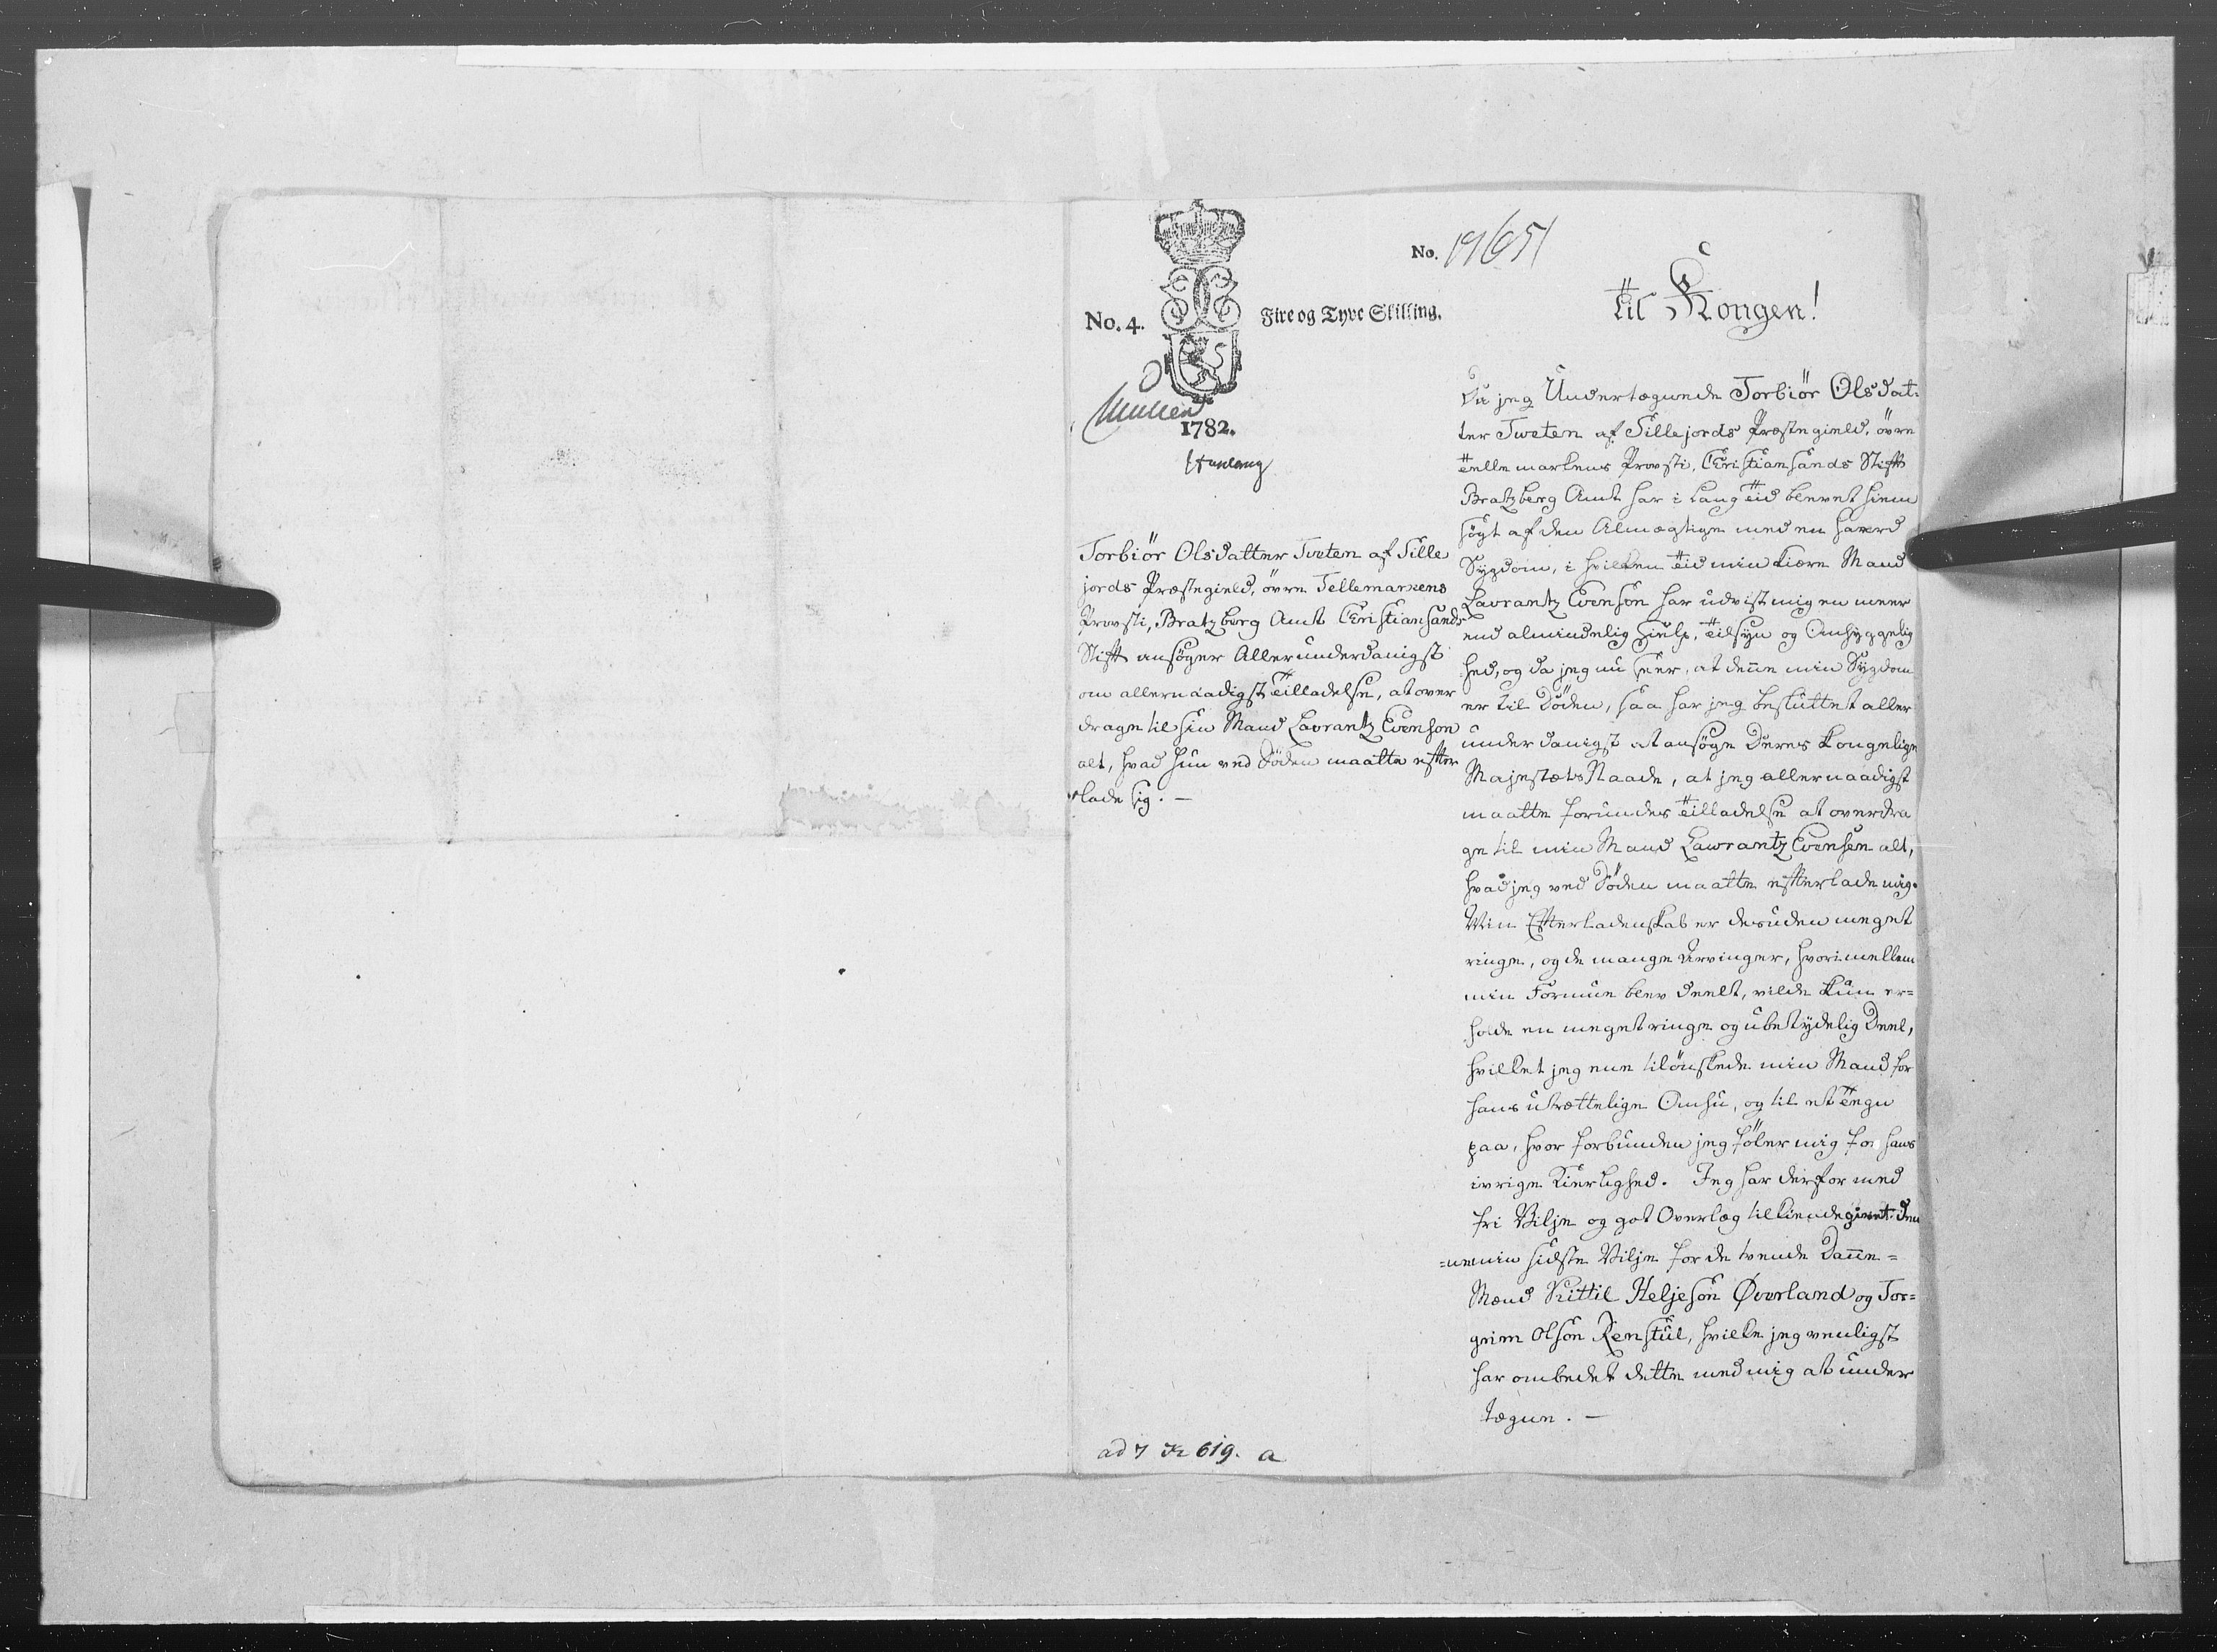 No. 4.
Fire og Tyve Skilling.
No. 19651
1782.
Torbiör Olsdatter Tveten af Sille
jords Præstegield, övre Tellemarkens
Provsti, Bratzberg Amt Christiansands
Stift ansöger Allerunderdanigst
om allernaadigst Tilladelse, at over
drage til sin Mand Lavrantz Evenson
alt, hvad hun ved Döden maatte efter
lade sig. —
ad 7 619. a
Til Kongen!
Da jeg Undertegnede Torbiör Olsdat-
ter Tveten af Sillejords Præstegield, övre
Tellemarkens Provsti, Christiansands Stift
Bratzberg Amt har i lang Tid blevet hiem
sögt af den Almægtige med en haard
Sygdom, i hvilken Tid min kiere Mand
Lavrantz Evenson har udvist mig en meer
end almindelig Hielp, Tilsyn og Omhyggelig
hed, og da jeg nu seer, at denne min Sygdom
er til Döden, saa har jeg besluttet aller
underdanigst at ansöge Deres Kongelige
Majestæts Naade, at jeg allernaadigst
maatte forundes Tilladelse at overdra
ge til min Mand Lawrantz Evensen alt,
hvad jeg ved Döden maatte efterlade mig.
Min Efterladenskab er desuden meget
ringe, og de mange Arvinger, hvorimellem
min Formue blev deelt, vilde kun er=
holde en meget ringe og ubetydelig Deel,
hvilket jeg ene tilönskede min Mand for
hans utrættelige Omhu, og til et Tegn
paa, hvor forbunden jeg föler mig for hans
ivrige Kierlighed. Jeg har derfor med
fri Vilje og got Overlæg tilkiendegivet den
=ne min sidste Vilje for de tvende Danne=
Mænd Kittil Heljesön Øverland og Tor=
geim Olsön Renstul, hvilke jeg venligst
har ombedet dette med mig at under
tegne. —